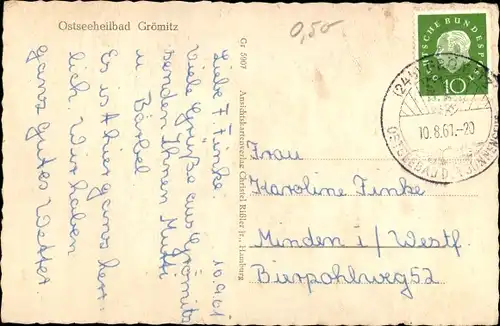 Ostseeheilbad Grömitz
0,50
10.9.61
Liebe F. Finke.
Viele Grüße aus Grömitz
senden Ihnen Mutti
u Bärbel
Es ist hier ganz herr
lich. Wir haben
ganz gutes Wetter.
Gr 5907
Ansichtskartenverlag Christel Rißler jr., Hamburg
DEUTSCHE BUNDESPOST
10
10.8.61.-20
OSTSEEBAD D.
Frau
Karoline Finke
Minden i/Westf.
Bierpohlweg 52